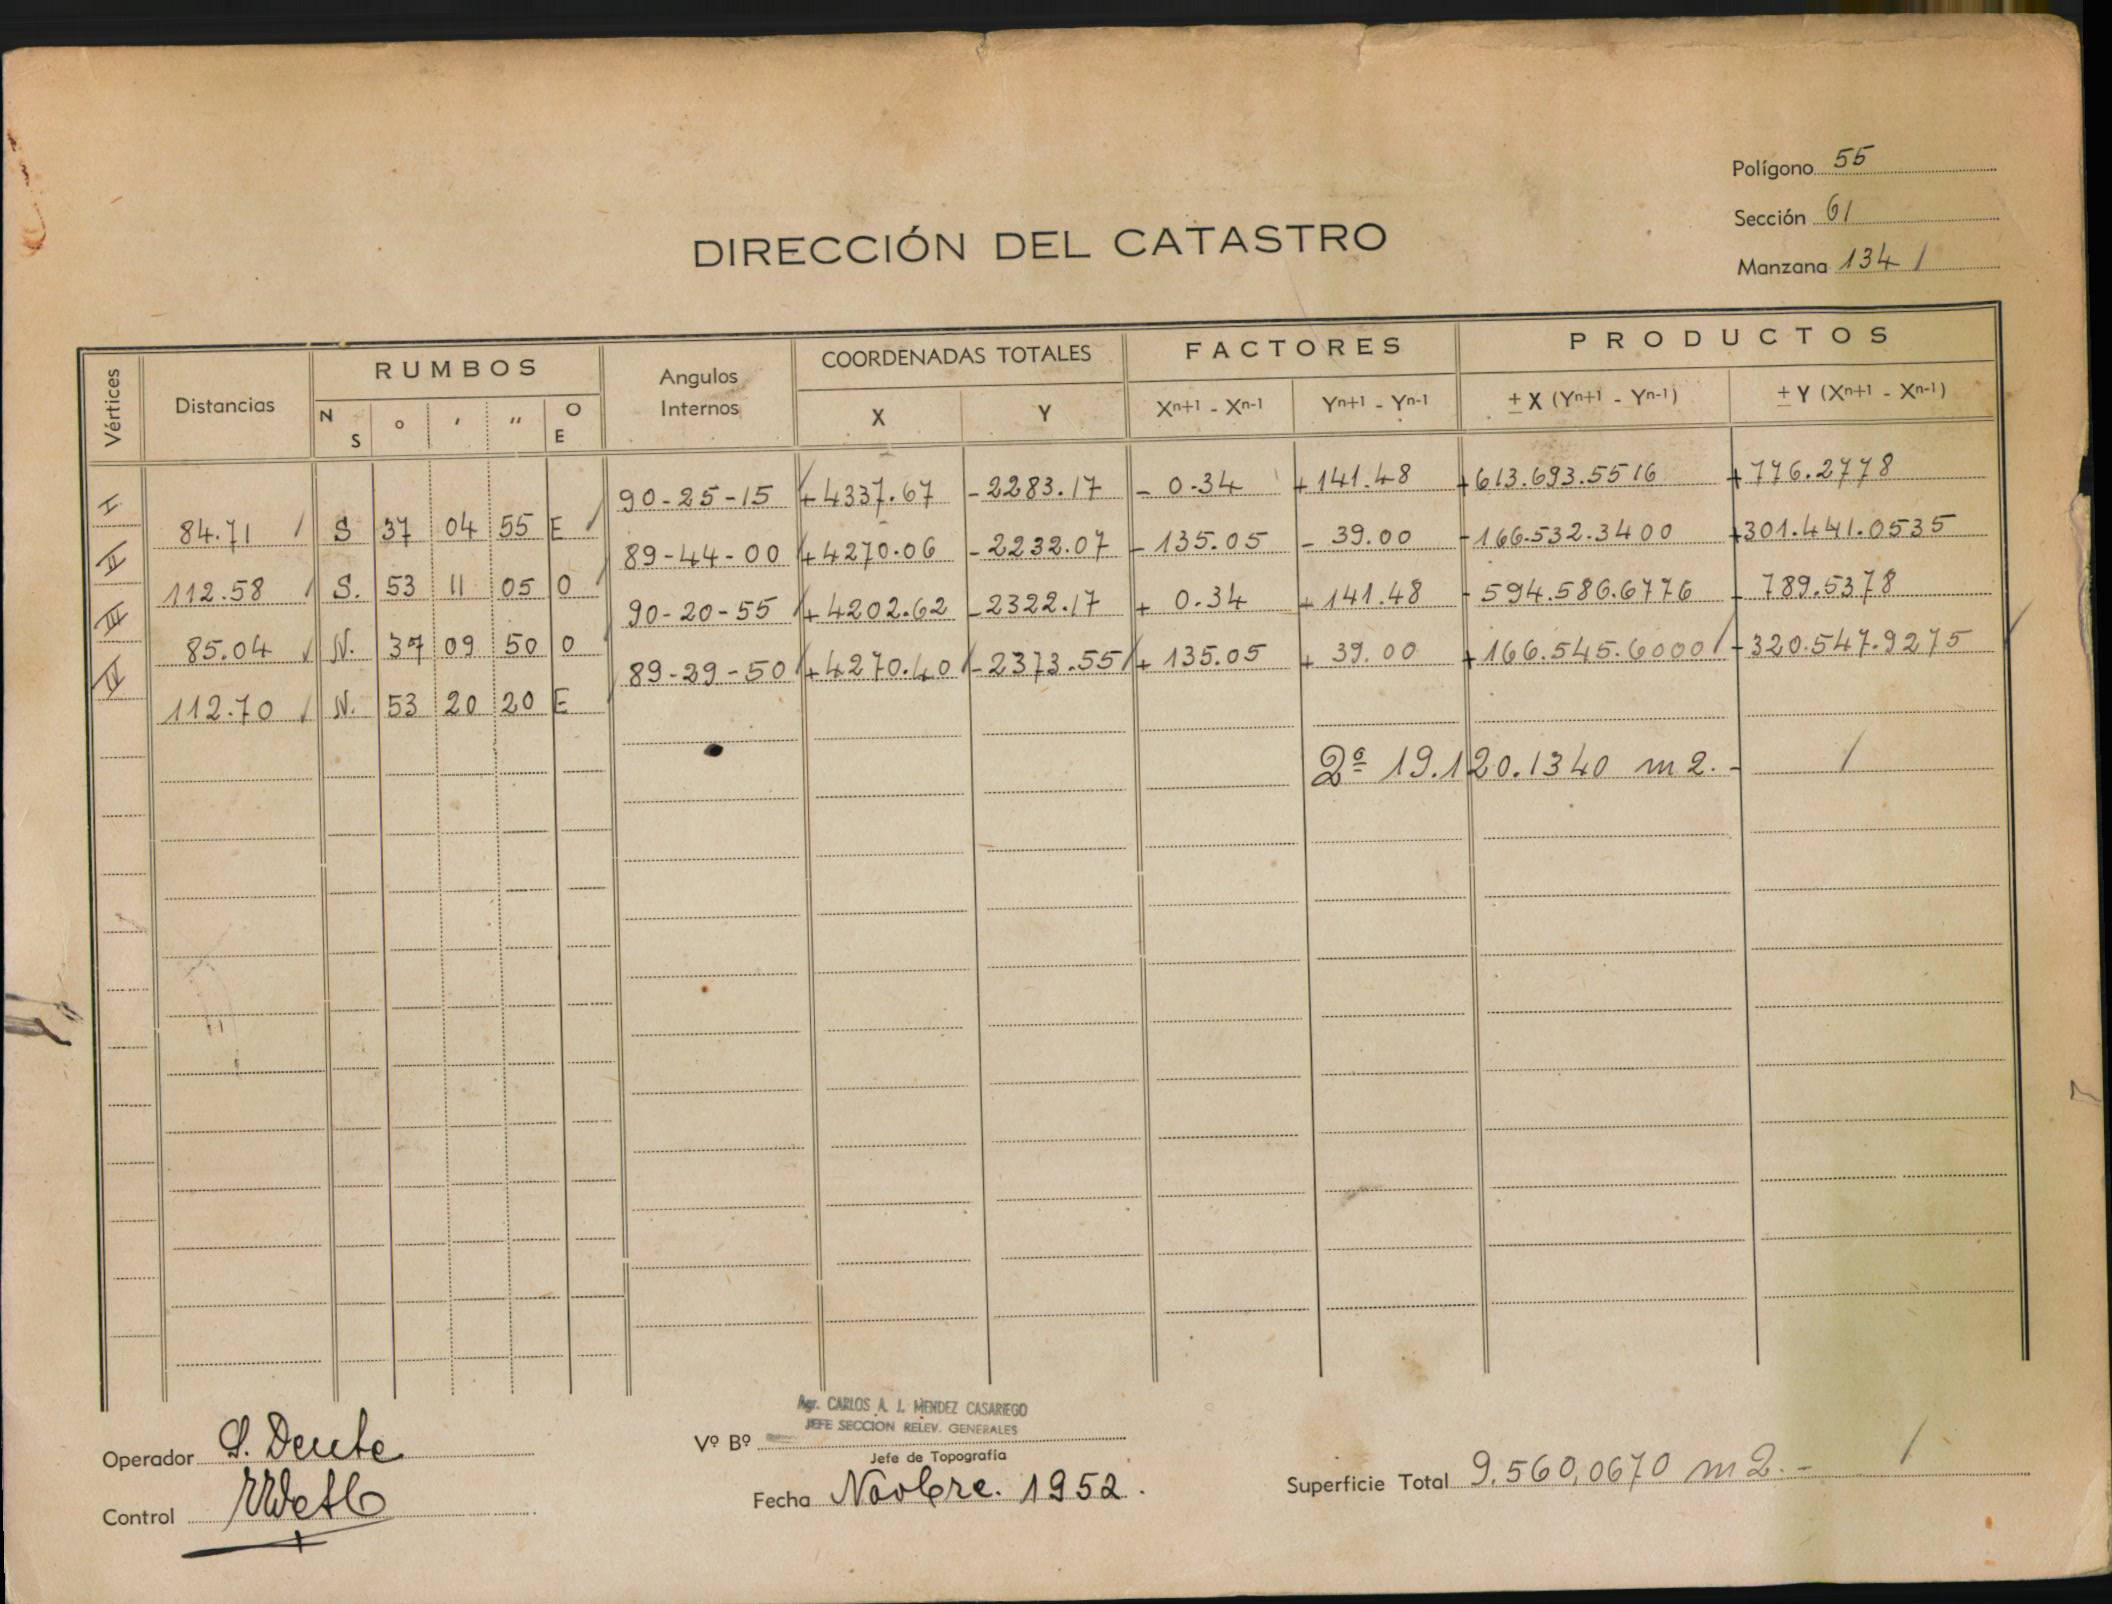 Polígono 55
Sección 61
Manzana 134
DIRECCIÓN DEL CATASTRO
Vértices Distancias RUMBOS Angulos Internos COORDENADAS TOTALES FACTORES PRODUCTOS
N S ° ' " O E X Y Xn+1 - Xn-1 Yn+1 - Yn-1 ± X (Yn+1 - Yn-1) ± Y (Xn+1 - Xn-1)
I 90-25-15 +4337.67 -2283.17 - 0.34 +141.48 +613.693.5516 +776.2778
84.71 S 37 04 55 E
II 89-44-00 +4270.06 -2232.07 - 135.05 - 39.00 -166.532.3400 +301.441.0535
112.58 S. 53 11 05 O
III 90-20-55 +4202.62 -2322.17 + 0.34 - 141.48 - 594.586.6776 - 789.5378
85.04 N. 37 09 50 O
IV 89-29-50 +4270.40 -2373.55 + 135.05 + 39.00 +166.545.6000 -320.547.9275
112.70 N. 53 20 20 E
2ª 19.120.1340 m2.-
Agr. CARLOS A. J. MENDEZ CASARIEGO
JEFE SECCION RELEV. GENERALES
Vº Bº
Jefe de Topografía
Operador S. Deute
Control
Fecha Novbre. 1952.
Superficie Total 9.560,0670 m2.-